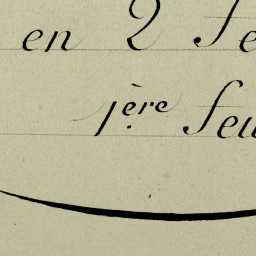 en 2 Fe
1ère Feu